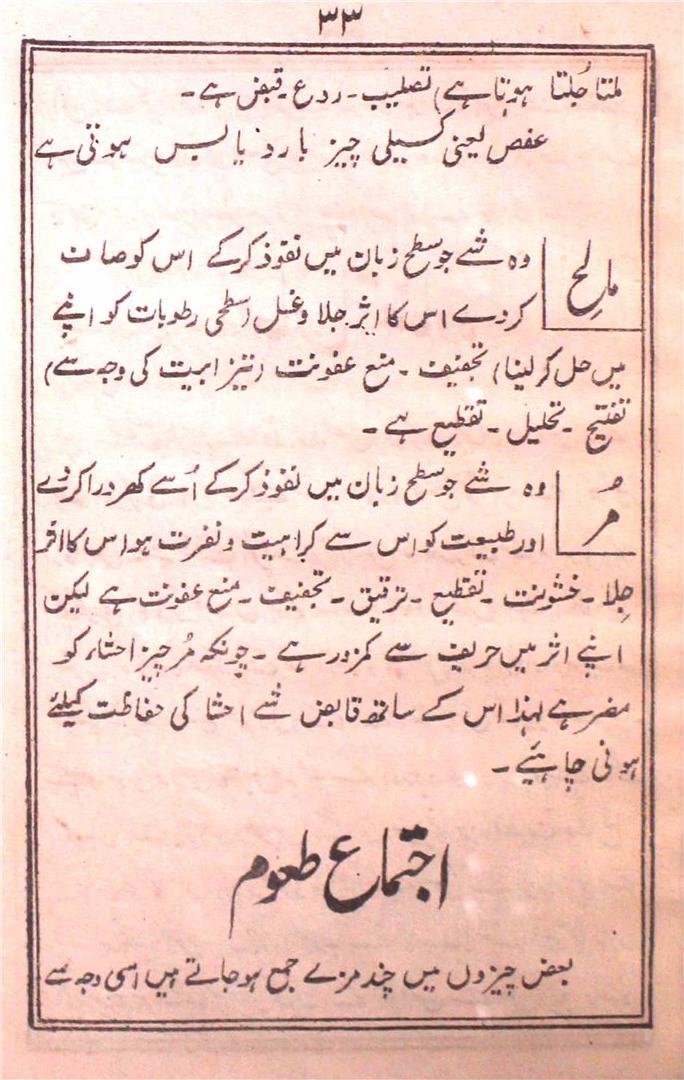 ۳۳
ملتا جُلتا ہوتا ہے) تصلیب۔ ردع۔ قبض ہے۔
عفص یعنی کسیلی چیز بارد یابس ہوتی ہے
مالح
وہ شے جو سطح زبان میں نفوذ کرکے اس کو صاف
کردے اس کا اثر جلا وغسل (سطحی رطوبات کو اپنے
میں حل کرلینا) تجفیف۔ منع عفونت (تیزابیت کی وجہ سے)
تفتیح۔ تحلیل۔ تقطیع ہے۔
مُر
وہ شے جو سطح زبان میں نفوذ کرکے اُسے کھردرا کردے
اور طبیعت کو اس سے کراہیت ونفرت ہو اس کا اثر
جِلا۔ خشونت۔ تقطیع۔ ترقیق۔ تجفیف۔ منع عفونت ہے لیکن
اپنے اثر میں حریف سے کمزور ہے۔ چونکہ مُر چیز احشاء کو
مضر ہے لہذا اس کے ساتھ قابض شے احشا کی حفاظت کیلئے
ہونی چاہئیے۔
اجتماع طعوم
بعض چیزوں میں چند مزے جمع ہوجاتے ہیں اسی وجہ سے